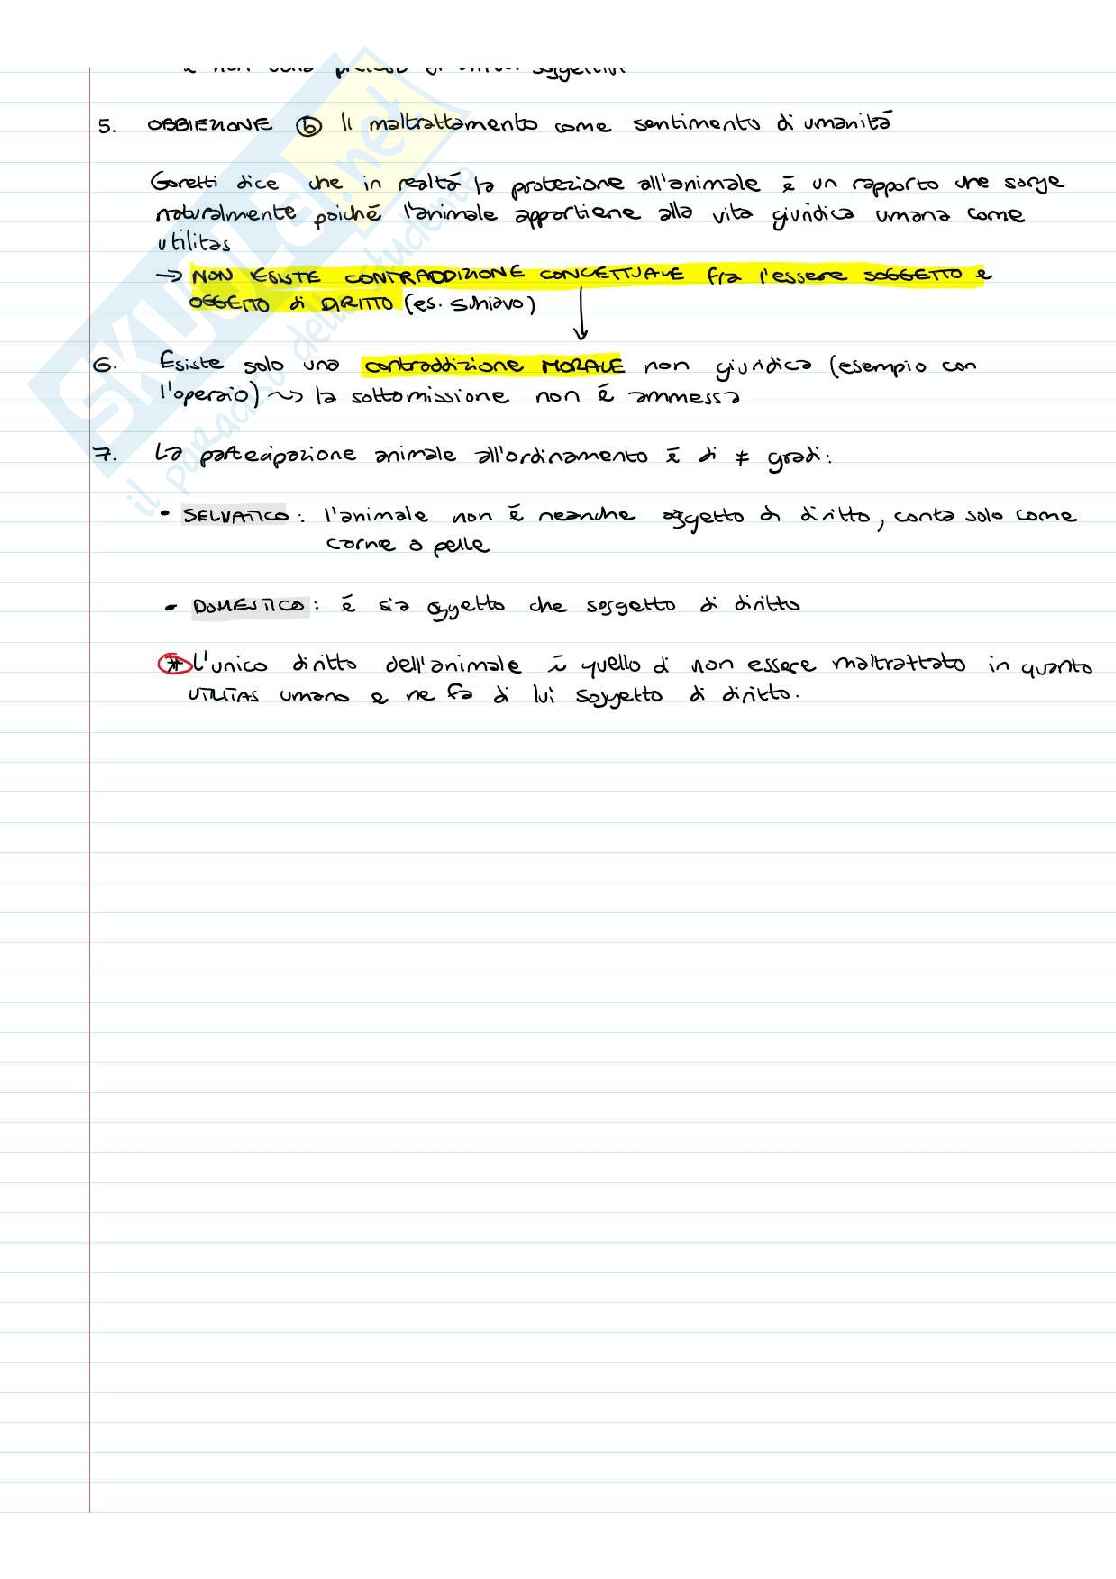 5. OBBIEZIONE ⓑ Il maltrattamento come sentimento di umanità
Goretti dice che in realtà la protezione all'animale è un rapporto che sorge
naturalmente poiché l'animale appartiene alla vita giuridica umana come
utilitas
→ NON ESISTE CONTRADDIZIONE CONCETTUALE fra l'essere SOGGETTO e
OGGETTO di DIRITTO (es. schiavo)
6. Esiste solo una contraddizione MORALE non giuridica (esempio con
l'operaio) ~> la sottomissione non è ammessa
7. La partecipazione animale all'ordinamento è di ≠ gradi:
• SELVATICO: l'animale non è neanche oggetto di diritto, conta solo come
carne o pelle
• DOMESTICO: è sia oggetto che soggetto di diritto
* L'unico diritto dell'animale è quello di non essere maltrattato in quanto
UTILITAS umana e ne fa di lui soggetto di diritto.
SKUOLA.net
il paradiso dello studente